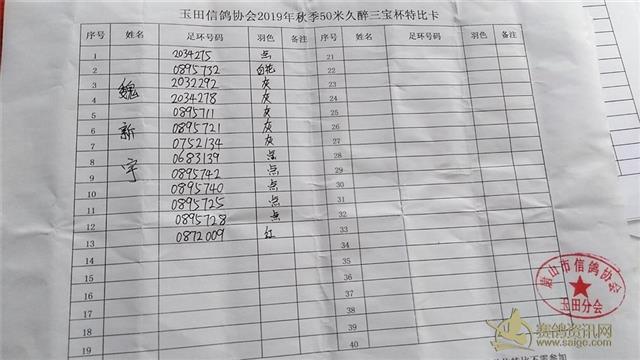 玉田信鸽协会2019年秋季50米久醉三宝杯特比卡
序号 姓名 足环号码 羽色 备注 序号 姓名 足环号码 羽色 备注
1 2034275 点 21
2 0895732 白花 22
3 魏 2032292 灰 23
4 2034278 灰 24
5 0895711 灰 25
6 新 0895721 灰 26
7 0752134 灰 27
8 宇 0683139 点 28
9 0895742 点 29
10 0895740 点 30
11 0895725 点 31
12 0895728 点 32
13 0872009 红 33
14 34
15 35
16 36
17 37
18 38
19 39
40
唐山市信鸽协会
玉田分会
赛鸽资讯网
www.saige.com